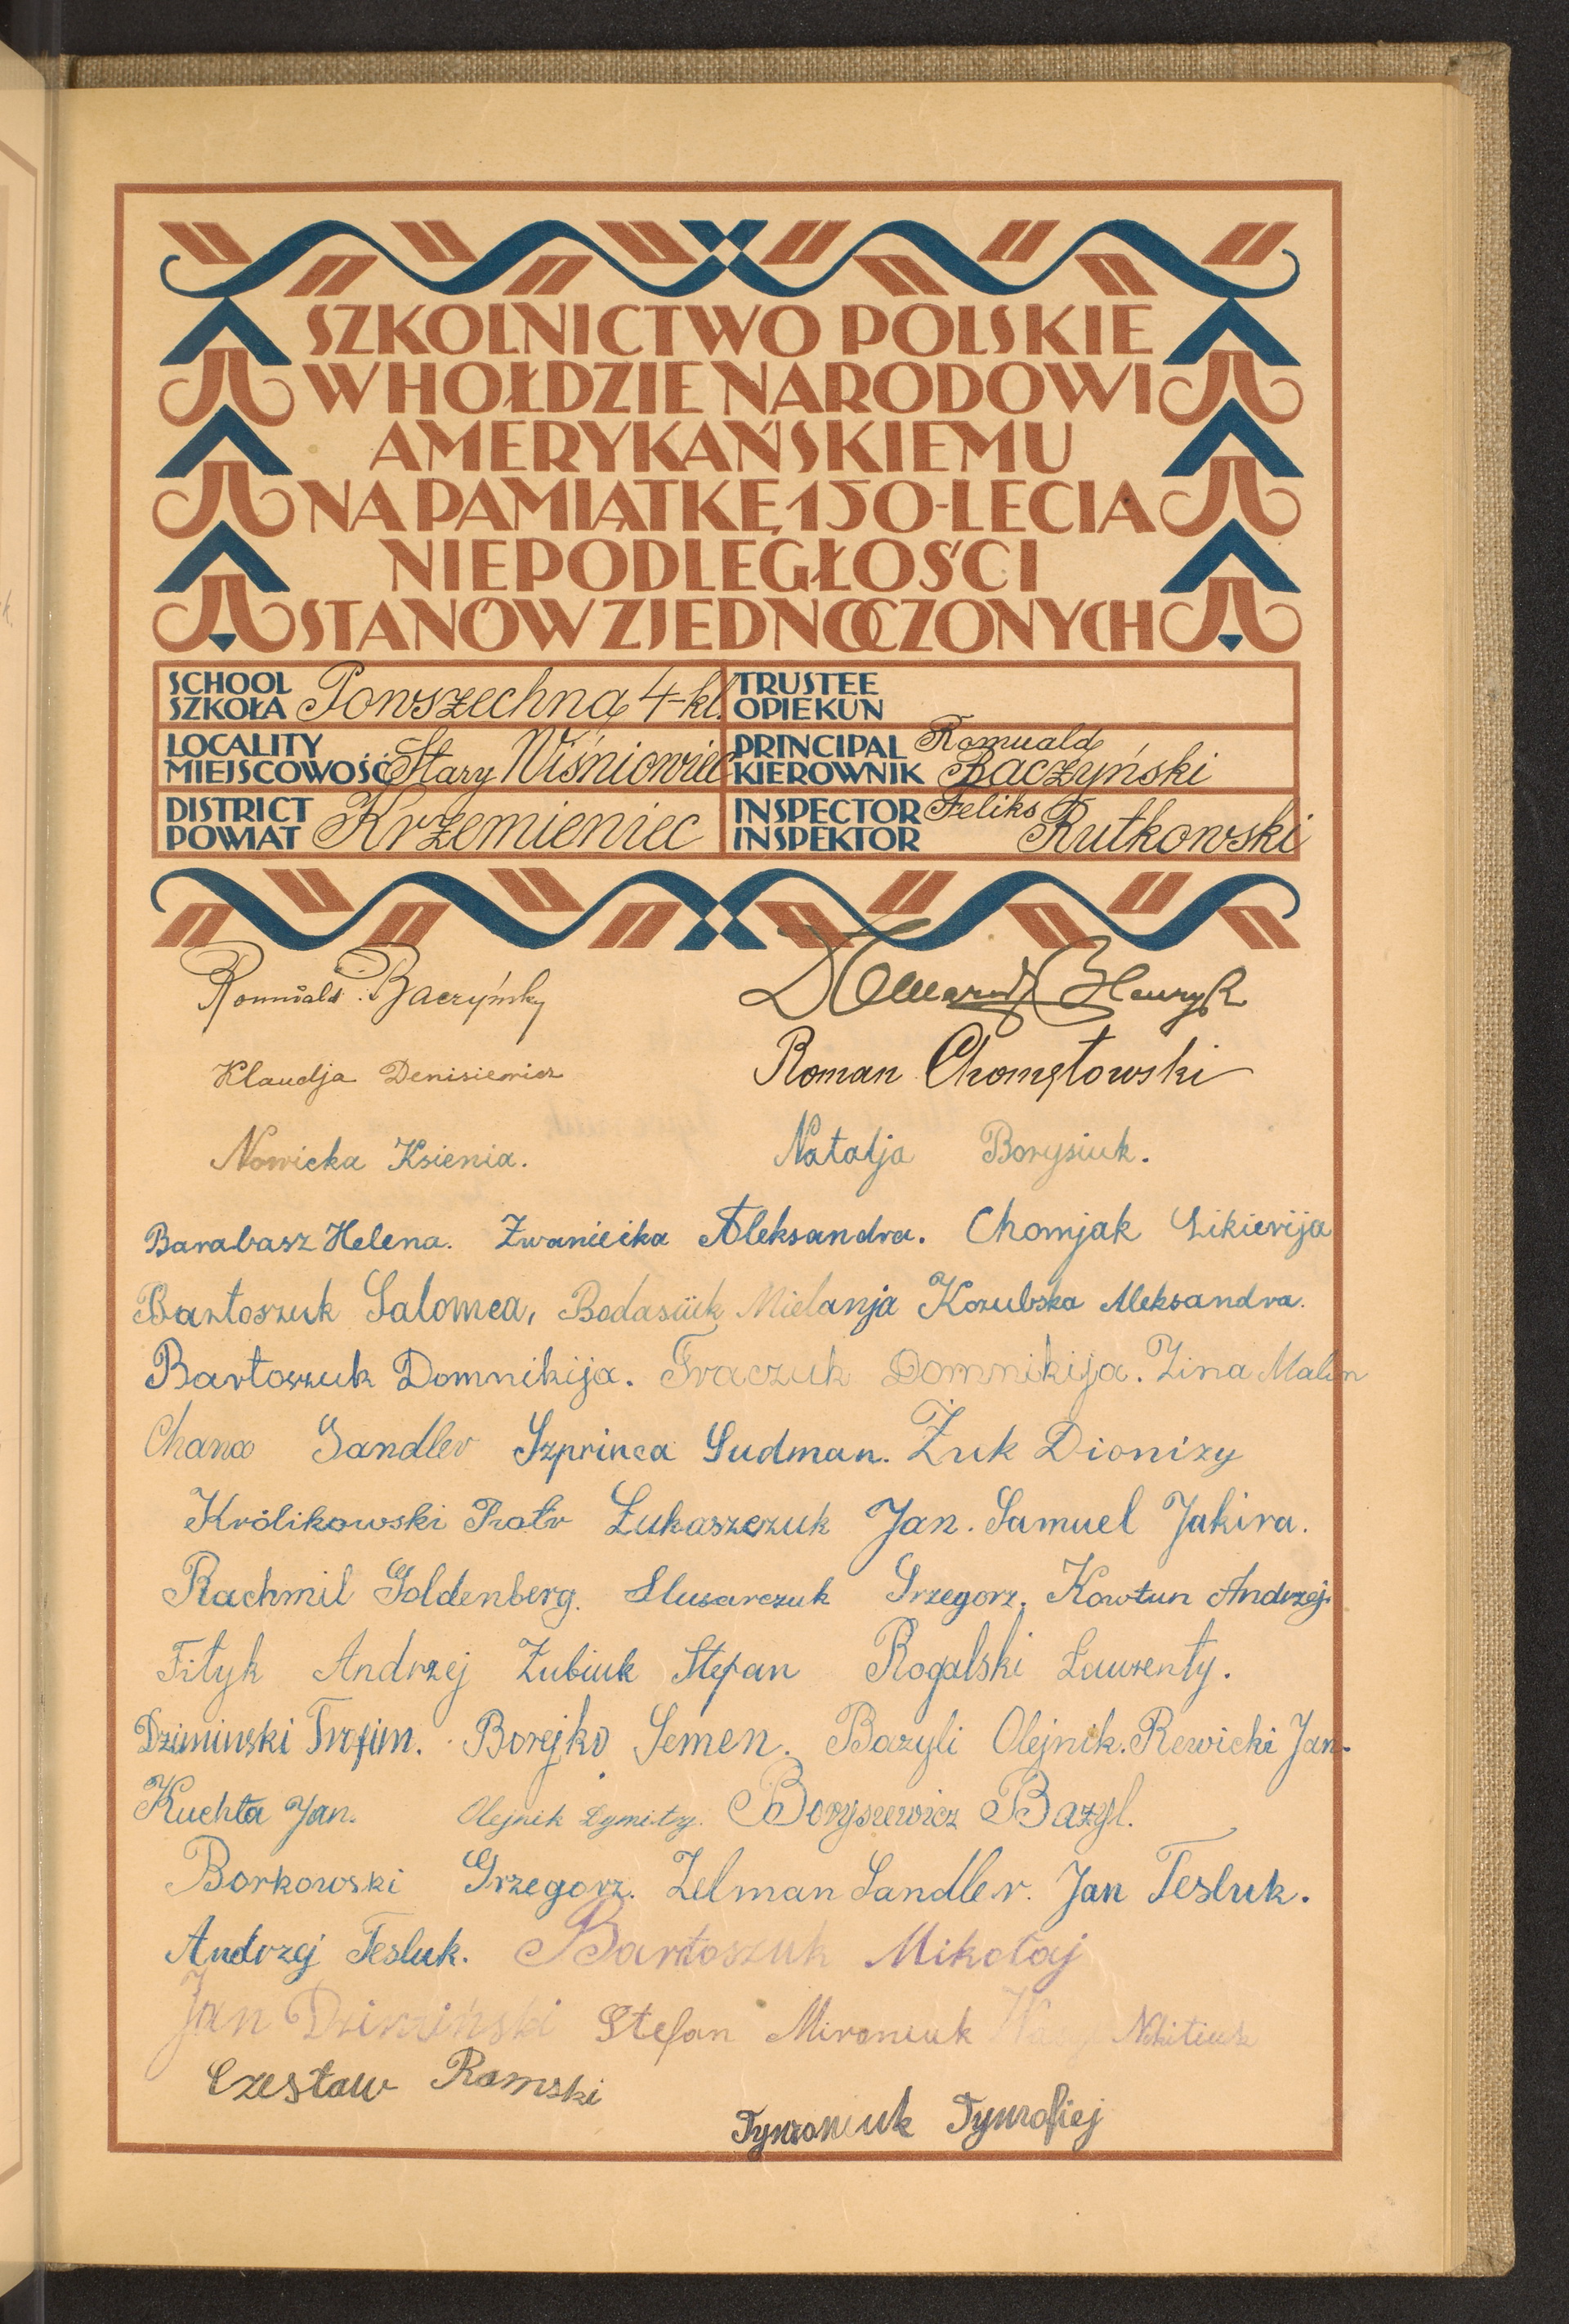 SZKOLNICTWO POLSKIE
W HOŁDZIE NARODOWI
AMERYKAŃSKIEMU
NA PAMIĄTKĘ 150-LECIA
NIEPODLEGŁOŚCI
STANÓW ZJEDNOCZONYCH
SCHOOL SZKOŁA Powszechna 4-kl.
TRUSTEE OPIEKUN
LOCALITY MIEJSCOWOŚĆ Stary Wiśniowiec
PRINCIPAL KIEROWNIK Romuald Baczyński
DISTRICT POWIAT Krzemieniec
INSPECTOR INSPEKTOR Feliks Rutkowski
Romuald Baczyński Henryk
Klaudja Denisiewicz Roman Chomętowski
Nowicka Ksienia. Natalja Borysiuk.
Barabasz Helena. Zwaniecka Aleksandra. Chomjak Likierija
Bartoszuk Salomea, Bodasiuk Mielanja Kozubska Aleksandra.
Bartoszuk Domnikija. Traczuk Domnikija. Zina Malin
Chana Sandler Szprinca Sudman. Żuk Dionizy
Królikowski Piotr Łukaszczuk Jan. Samuel Jakira.
Rachmil Goldenberg. Slusarczuk Grzegorz. Kowtun Andrzej.
Fityk Andrzej Zubiuk Stepan Rogalski Laurenty.
Dziminski Trofim. Borejko Semen. Bazyli Olejnik. Rewicki Jan.
Kuchta Jan. Olejnik Dymitry. Borysewicz Bazyl.
Borkowski Grzegorz. Zelman Sandler. Jan Tesluk.
Andrzej Tesluk. Bartoszuk Mikołaj
Jan Dzimiński Stefan Mironiuk Nikitiuk
Czesław Ramski
Tymoniuk Tymofiej